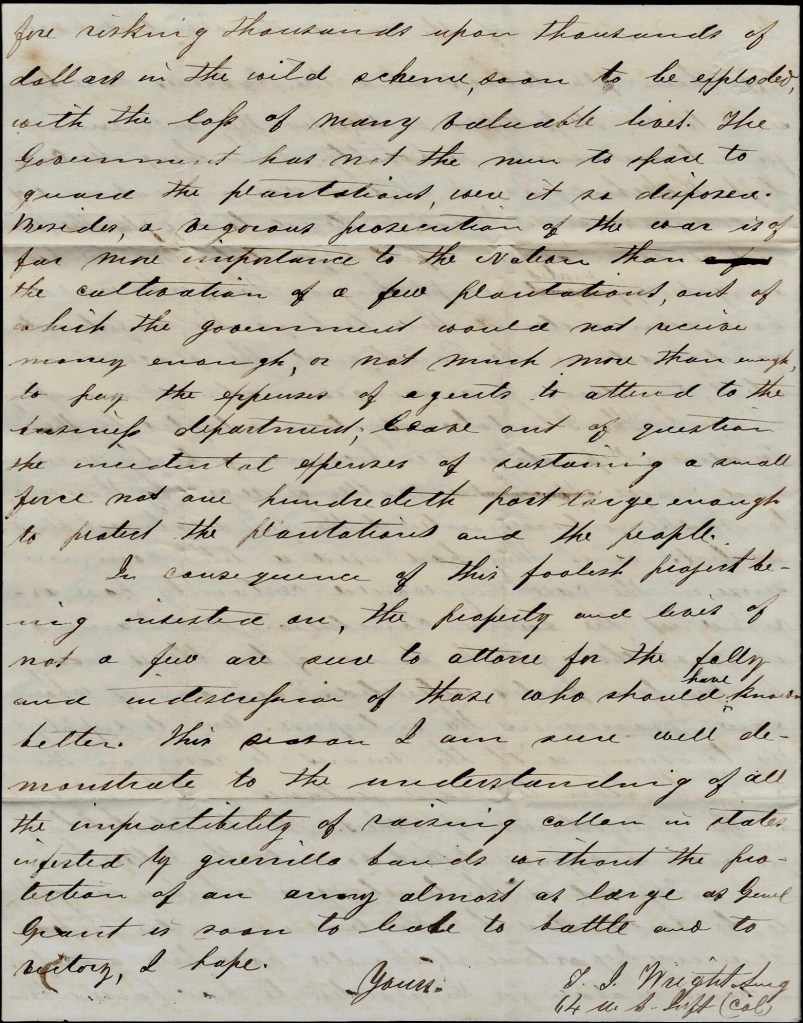 fore risking thousands upon thousands of
dollars in the wild scheme, soon to be exploded,
with the loss of many valuable lives. The
Government has not the men to spare to
guard the plantations, were it so disposed.
Besides, a vigorous prosecution of the war is of
far more importance to the Nation than
the cultivation of a few plantations, out of
which the government would not receive
money enough, or not much more than enough,
to pay the expenses of agents to attend to the
business department; leave out of question
the incidental expenses of sustaining a small
force not one hundredeth part large enough
to protect the plantations and the people.
In consequence of this foolish project be-
ing insested on, the property and lives of
not a few are sure to attone for the folly
and indiscression of those who should have known
better. This season I am sure will de-
monstrate to the understanding of all
the impractibility of raising cotton in states
infested by guerrilla bands without the pro-
tection of an army almost as large as Genl
Grant is soon to lead to battle and to
victory, I hope.
Yours.
T. J. Wright Surg
64 U. S. Inft (Col)